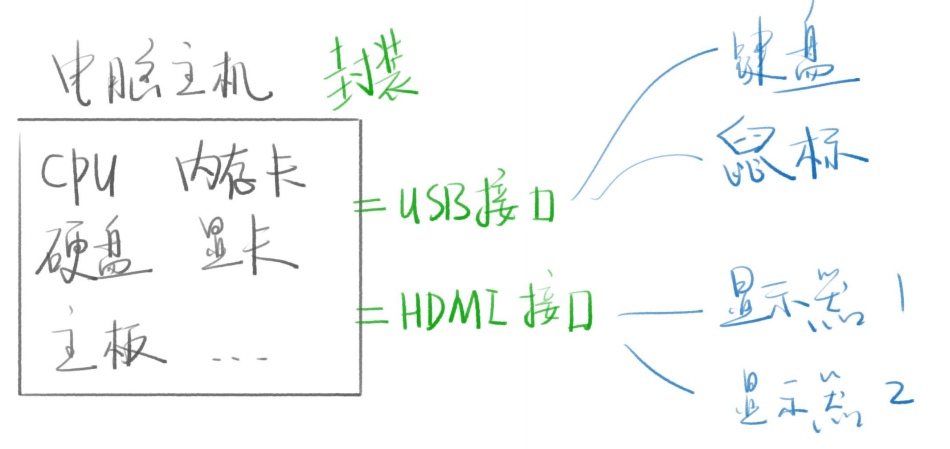 电脑主机 封装
CPU 内存卡
硬盘 显卡
主板 ...
=USB接口
=HDMI接口
键盘
鼠标
显示器1
显示器2